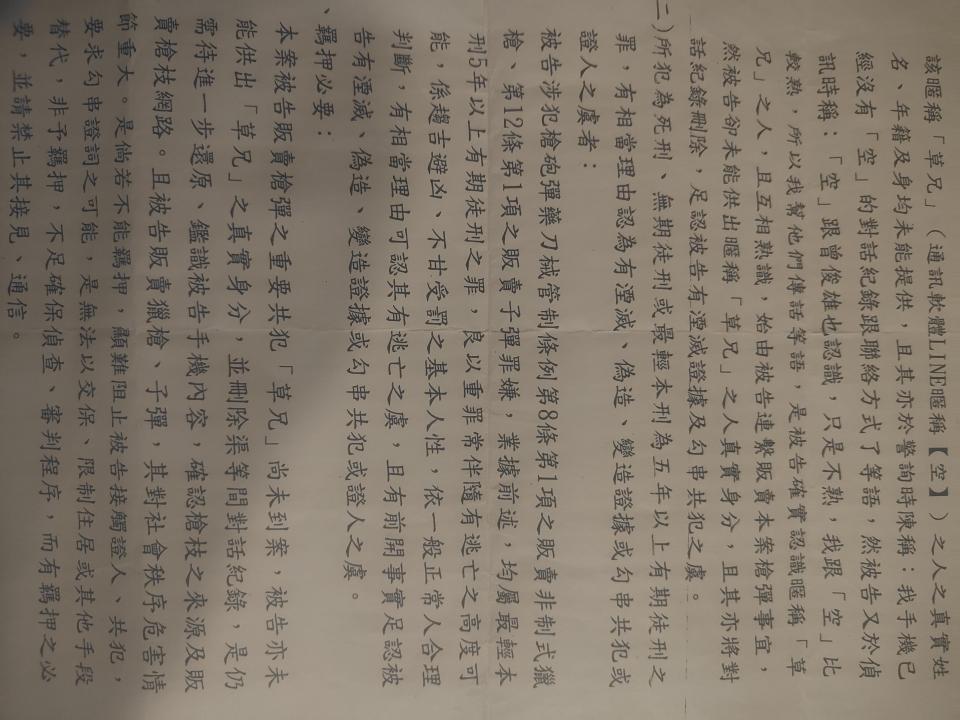 該暱稱「草兄」（通訊軟體LINE暱稱【空】）之人之真實姓
名、年籍及身均未能提供，且其亦於警詢時陳稱：我手機已
經沒有「空」的對話紀錄跟聯絡方式了等語，然被告又於偵
訊時稱：「空」跟曾俊雄也認識，只是不熟，我跟「空」比
較熟，所以我幫他們傳話等語，是被告確實認識暱稱「草
兄」之人，且互相熟識，始由被告連繫販賣本案槍彈事宜，
然被告卻未能供出暱稱「草兄」之人真實身分，且其亦將對
話紀錄刪除，足認被告有湮滅證據及勾串共犯之虞。
二)所犯為死刑、無期徒刑或最輕本刑為五年以上有期徒刑之
罪，有相當理由認為有湮滅、偽造、變造證據或勾串共犯或
證人之虞者：
被告涉犯槍砲彈藥刀械管制條例第8條第1項之販賣非制式獵
槍、第12條第1項之販賣子彈罪嫌，業據前述，均屬最輕本
刑5年以上有期徒刑之罪，良以重罪常伴隨有逃亡之高度可
能，係趨吉避凶、不甘受罰之基本人性，依一般正常人合理
判斷，有相當理由可認其有逃亡之虞，且有前開事實足認被
告有湮滅、偽造、變造證據或勾串共犯或證人之虞。
、羈押必要：
本案被告販賣槍彈之重要共犯「草兄」尚未到案，被告亦未
能供出「草兄」之真實身分，並刪除渠等間對話紀錄，是仍
需待進一步還原、鑑識被告手機內容，確認槍枝之來源及販
賣槍枝網路。且被告販賣獵槍、子彈，其對社會秩序危害情
節重大。是倘若不能羈押，顯難阻止被告接觸證人、共犯，
要求勾串證詞之可能，是無法以交保、限制住居或其他手段
替代，非予羈押，不足確保偵查、審判程序，而有羈押之必
要，並請禁止其接見、通信。